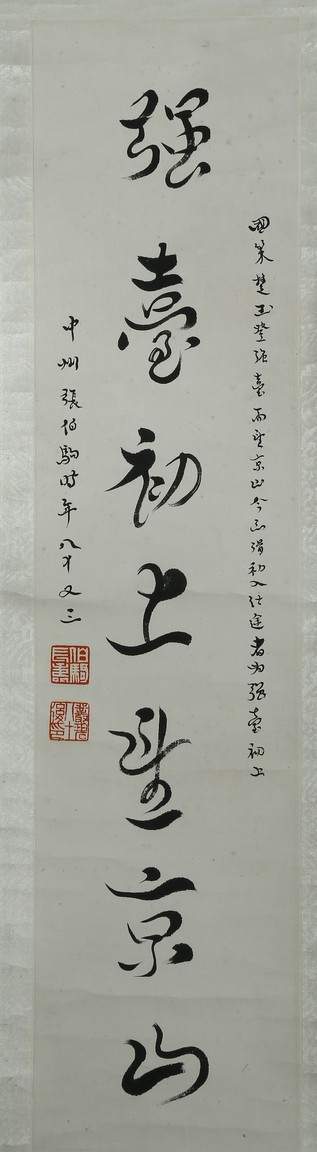 國策楚王登强臺而望京山今之謂初入仕途者为强臺初上
强臺初上望京山
中州張伯駒時年八十又三